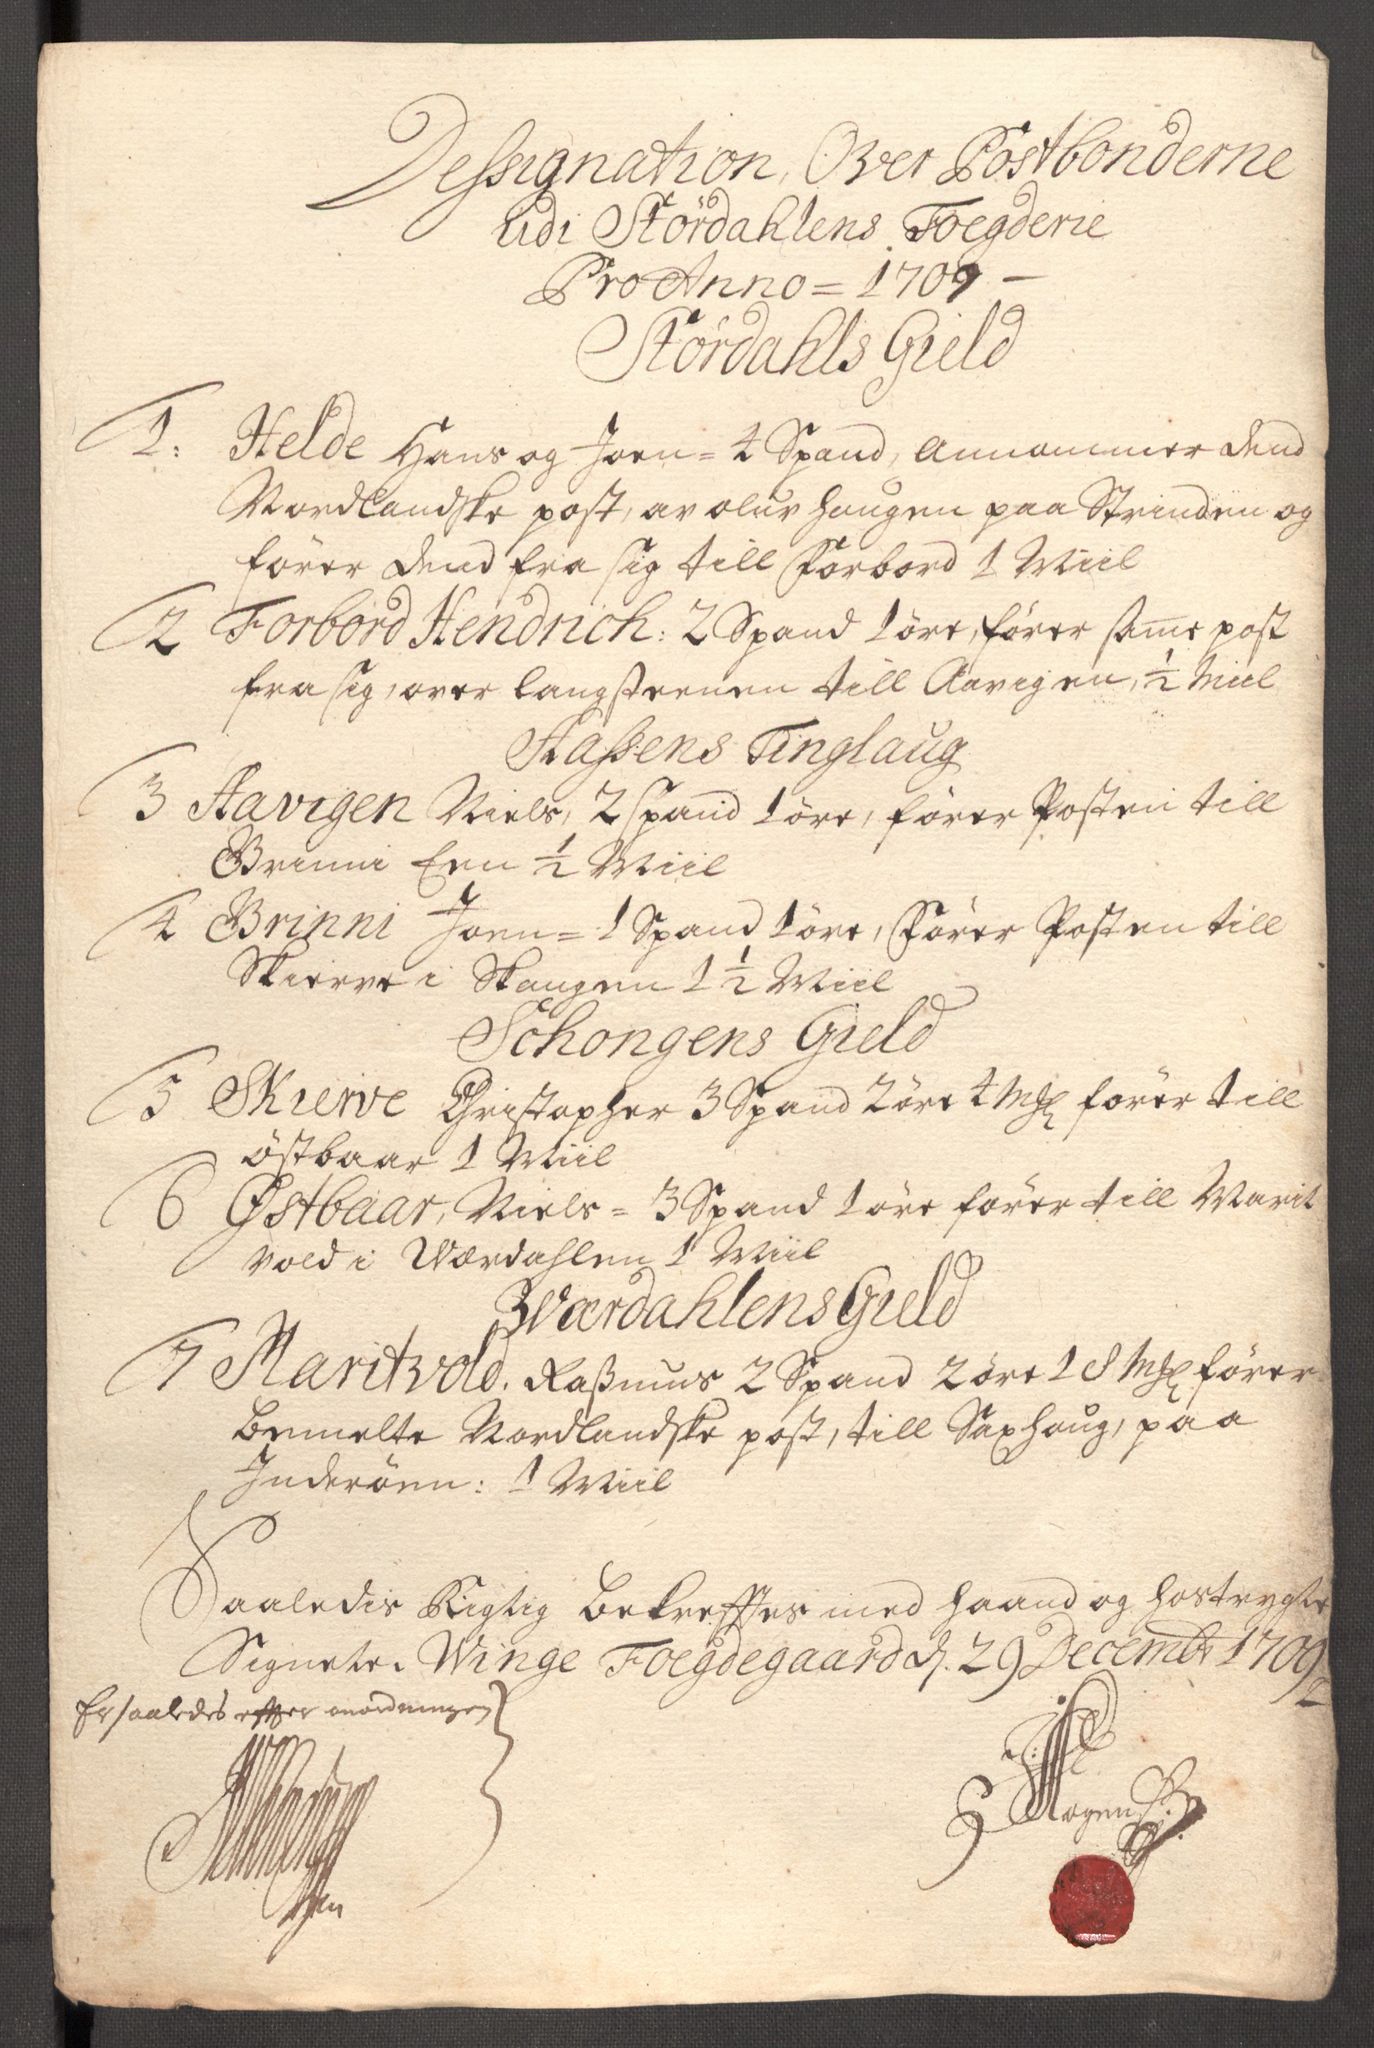 Dessignation, Over Postbønderne
udi Størdahlens Foegderie
Pro Anno = 1709 –
Størdahls Gield
1: Helde Hans og Joen = 4 Spand, Annammer dend
Nordlandske post, av oluv haugen paa Strinden og
fører dend fra sig till Forbord 1 Miil
2 Forbord Hendrich: 2 Spand 1 øre, fører same post
fra sig, over langsteenen till Aavigen, ½ Miil
Aaßens Tinglaug
3 Aavigen Niels, 2 Spand 1 øre, fører Posten till
Brinni Een ½ Miil
4 Brinni Joen = 1 Spand 1 øre, Fører Posten till
Skierve i Skaugen 1 ½ Miil
Schongens Gield
5 Skierve Christopher 3 Spand 2 øre 4 Mkl fører till
østbaar 1 Miil
6 Østbaar, Niels = 3 Spand 1 øre fører till Marit
vold i Værdahlen 1 Miil
Værdahlens Gield
7 Maritvold. Raßmus 2 Spand 2 øre 18 Mkl fører
bemelte Nordlandske post, till Saxhaug, paa
Inderøen: 1 Miil
Saaledis Rigtig bekrefftes med haand og hostrygte
Signete. Winge Foegdegaard d. 29 Decembr 1709
Er saaledes effter anordningen